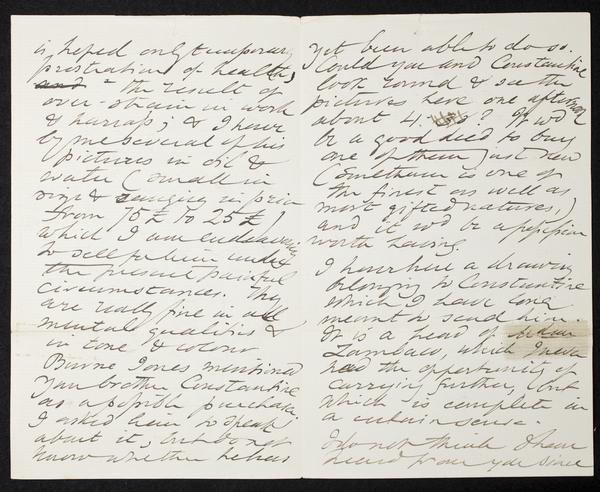 is hoped only temporary
prostration of health,
and - the result of
over-strain in work
& harrass; & I have
by me several of his
pictures in oil &
water (small in
size & ranging in price
from 75£ to 25£)
which I am endeavouring
to sell for him under
the present painful
circumstances. They
are really fine in all
mental qualities &
in tone & colour
Burne Jones mentioned
your brother Constantine
as a possible purchaser.
I asked him to speak
about it, but do not
know whether he has
yet been able to do so.
Could you and Constantine
look round & see the
pictures here one afternoon
about 4. ? It wd
be a good deed to buy
one of them just now
(Smetham is one of
the finest as well as
most gifted natures,)
and it wd be a possession
worth having.
I have here a drawing
belonging to Constantine
which I have long
meant to send him.
It is a head of
Zambaco, which I never
had the opportunity of
carrying further, but
which is complete in
a certain sense.
I do not think I have
heard from you since